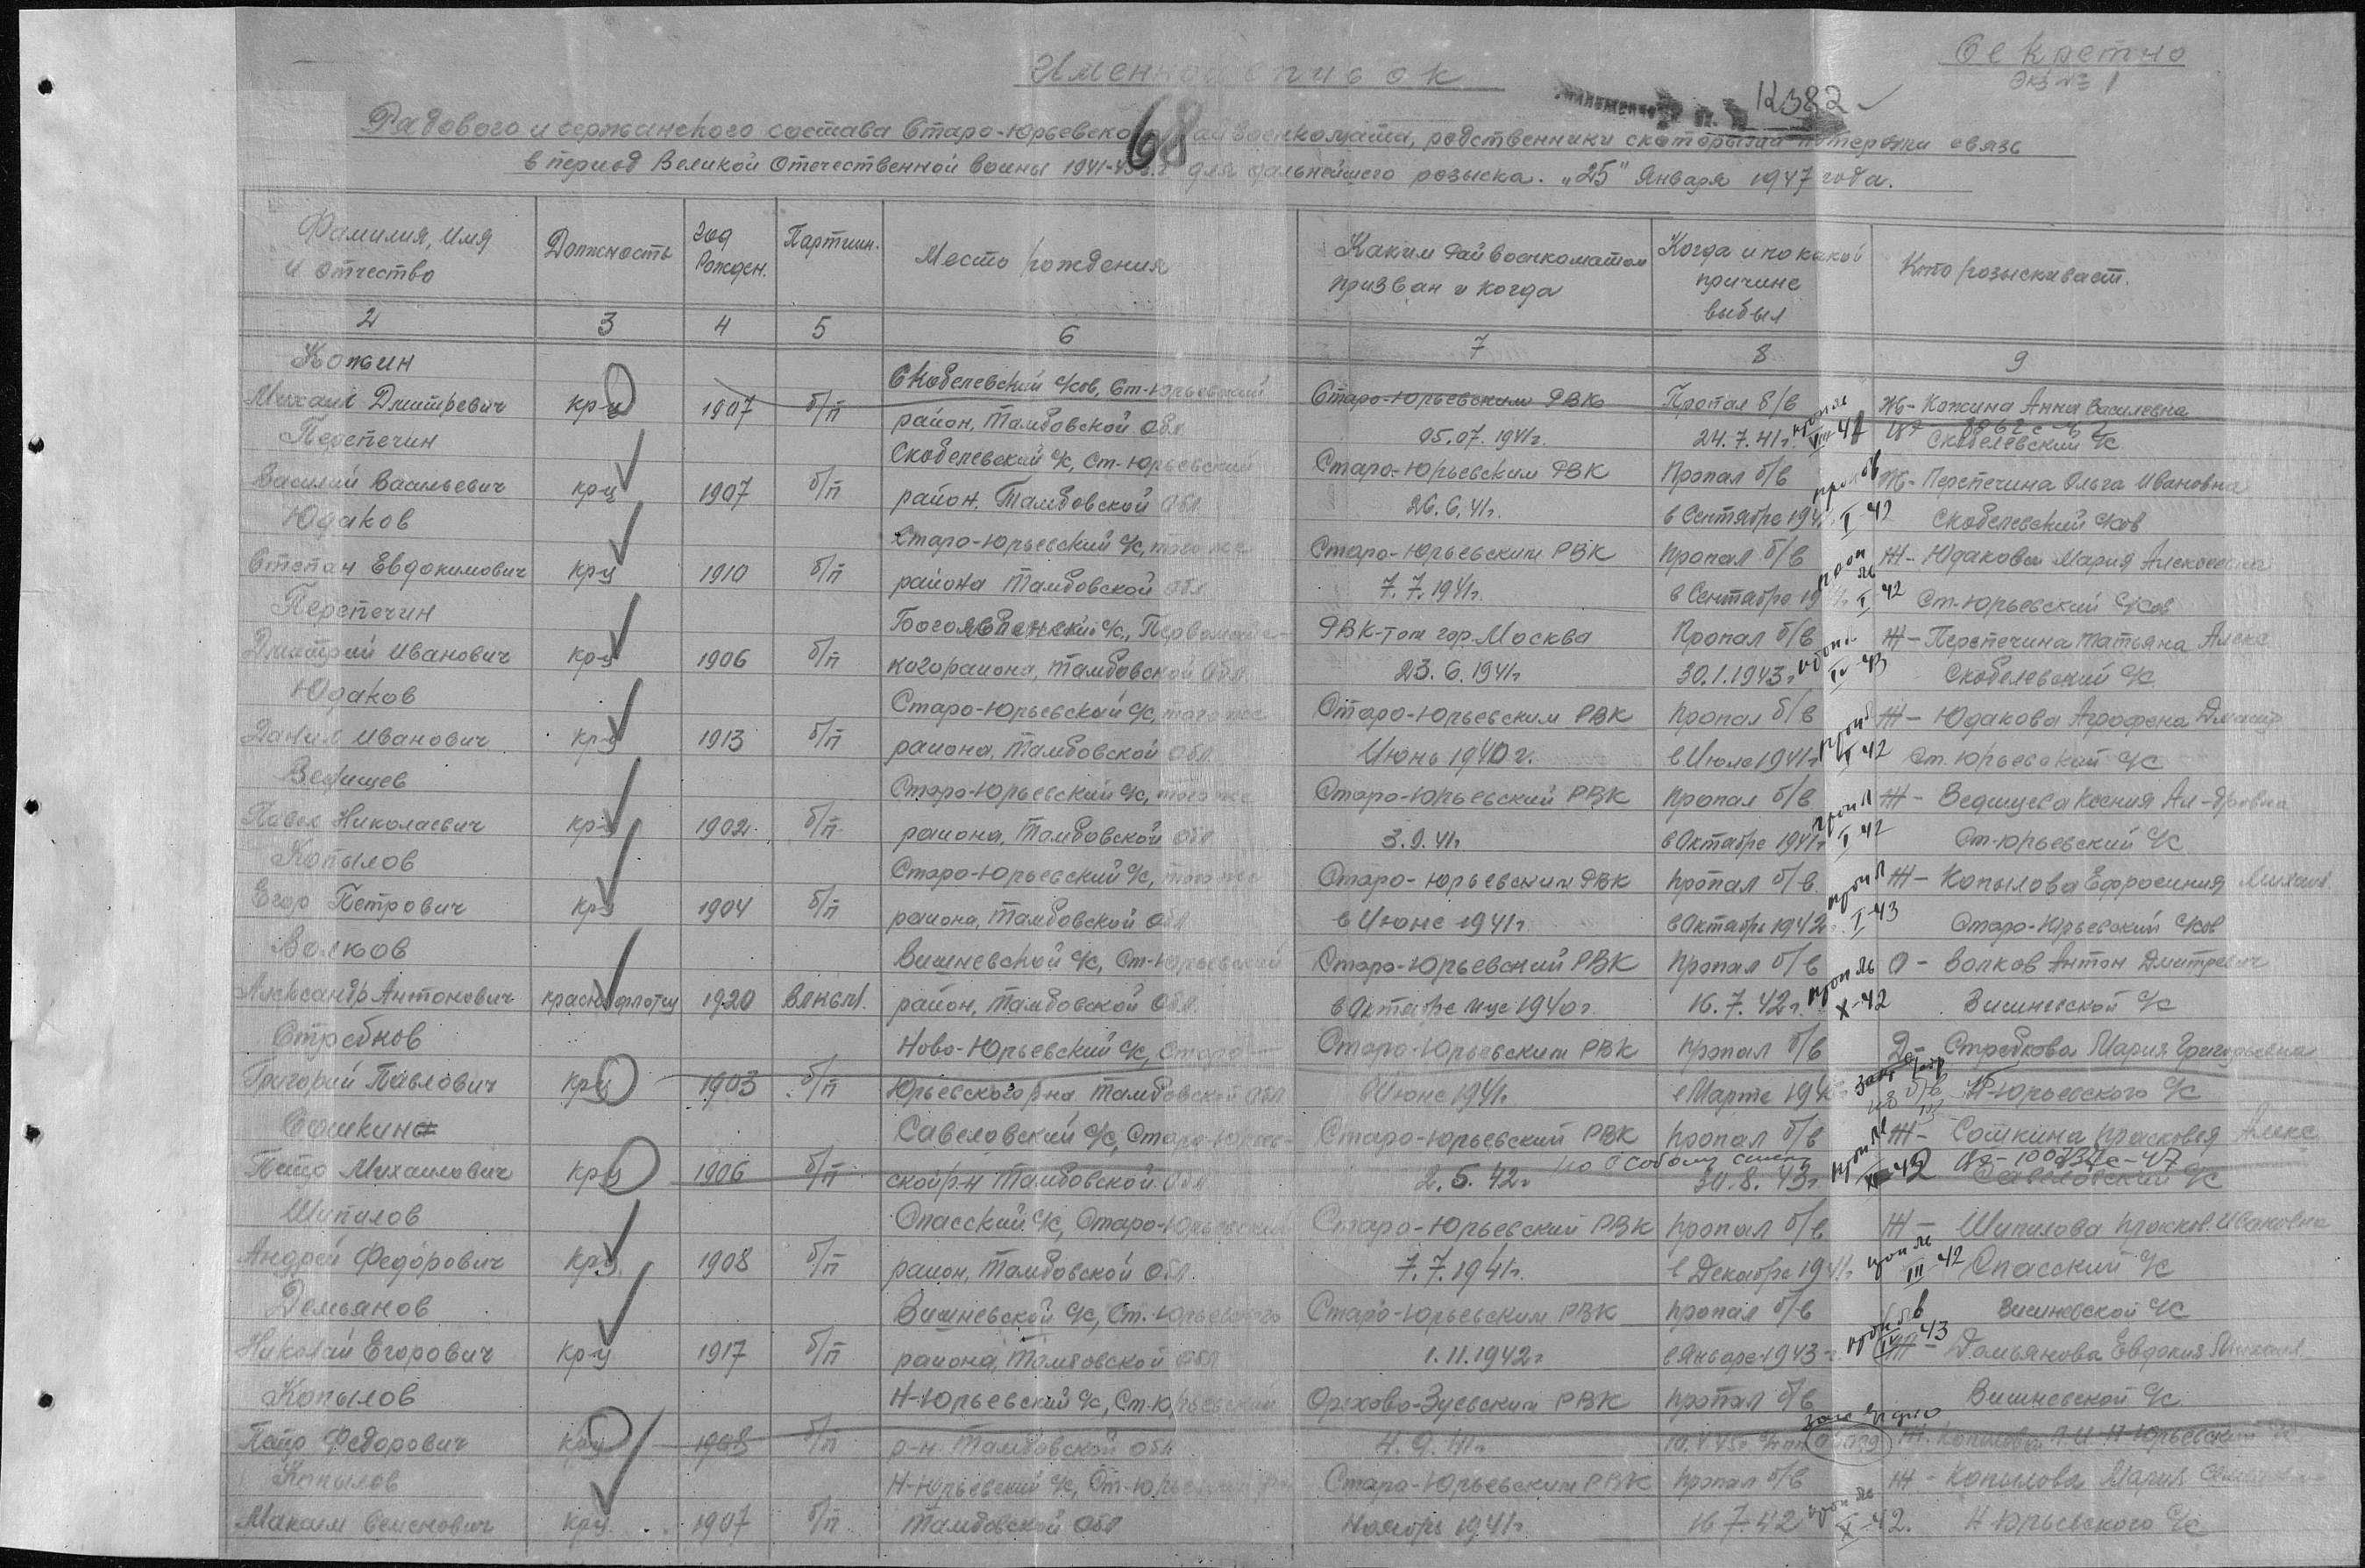 Секретно
Экз № 1
Именной список
12382
68
Рядового и сержанского состава Старо-Юрьевско военкомата, родственники с которыми потеряли связь
в период Великой Отечественной войны 1941-45 г.г для дальнейшего розыска. „25" Января 1947 года.
Фамилия, Имя и отчество Должность Год Рожден. Партийн. Место рождения Каким Райвоенкоматом призван и когда Когда и по какой причине выбыл Кто розыскивает.
2 3 4 5 6 7 8 9
Кожин Скобелевский с/сов, Ст-Юрьевский Старо-Юрьевским РВК Пропал б/в Ж- Кожина Анна Василевна
Михаил Дмитревич кр-ц 1907 б/п район, Тамбовской Обл 05.07.1941г. 24.7.41г. VIII-41 Скобелевский с/с
Перепечин Скобелевский с/с, Ст-Юрьевский Старо-Юрьевским РВК Пропал б/в Ж- Перепечина Ольга Ивановна
Василий Васильевич кр-ц 1907 б/п район. Тамбовской Обл 26.6.41г. в Сентябре 194 I 42 Скобелевский с/сов
Юдаков Старо-Юрьевский с/с, того же Старо-Юрьевским РВК пропал б/в Ж- Юдакова Мария Алексеевна
Степан Евдокимович кр-ц 1910 б/п района Тамбовской обл 7.7.1941г. в Сентябре 19 I 42 Ст-Юрьевский с/сов
Перепечин Богоявленский с/с, Первомайс- РВК-том гор. Москва Пропал б/в Ж- Перепечина Татьяна Алекс
Дмитрий Иванович кр-ц 1906 б/п кого района, Тамбовской Обл 23.6.1941г 30.1.1943г IV-43 Скобелевский с/с
Юдаков Старо-Юрьевский с/с, того же Старо-Юрьевским РВК пропал б/в Ж- Юдакова Агрофена Дмитр
Данил Иванович кр-ц 1913 б/п района, Тамбовской Обл Июнь 1940г. в Июле 1941г 42 Ст. Юрьевский с/с
Ведищев Старо-Юрьевский с/с, того же Старо-Юрьевский РВК пропал б/в Ж- Ведищева Ксения Ал-дровна
Павел Николаевич кр-ц 1902 б/п района, Тамбовской Обл 3.9.41г. в Октябре 1941г I 42 Ст-Юрьевский с/с
Копылов Старо-Юрьевский с/с, того же Старо-Юрьевским РВК пропал б/в Ж- Копылова Ефросиния Михайл
Егор Петрович кр-ц 1904 б/п района, Тамбовской Обл в Июне 1941г. в Октябре 1942г. I-43 Старо-Юрьевский с/сов
Волков Вишневской с/с, Ст-Юрьевский Старо-Юрьевский РВК пропал б/в О- Волков Антон Дмитревич
Александр Антонович краснофлотец 1920 ВЛКСМ. район, Тамбовской Обл. в Октябре м-це 1940г. 16.7.42г. X-42 Вишневской с/с
Стребков Ново-Юрьевский с/с, Старо- Старо-Юрьевским РВК пропал б/в Д- Стребкова Мария Григорьевна
Григорий Павлович кр-ц 1903 б/п Юрьевского р-на Тамбовской Обл в Июне 1941г. в Марте 194 Н-Юрьевского с/с
Сошкин Савеловский с/с, Старо-Юрьев- Старо-Юрьевский РВК пропал б/в Ж- Сошкина Прасковья Алекс
Петр Михаилович кр-ц 1906 б/п ской р-н Тамбовской Обл 2.5.42г 30.8.43г. Савеловский с/с
Шипилов Спасский с/с, Старо-Юрьевский Старо-Юрьевский РВК пропал б/в Ж- Шипилова Прасков. Ивановна
Андрей Федорович кр-ц 1908 б/п район, Тамбовской Обл. 7.7.1941г. в Декабре 1941г. III-42 Спасский с/с
Демьянов Вишневской с/с, Ст-Юрьевского Старо-Юрьевским РВК пропал б/в Вишневской с/с
Николай Егорович кр-ц 1917 б/п района, Тамбовской Обл 1.11.1942г в Январе 1943г. IV-43 Ж- Демьянова Евдокия Михайл
Копылов Н-Юрьевский с/с, Ст-Юрьевский Орехово-Зуевским РВК пропал б/в Вишневской с/с
Петр Федорович кр-ц 1908 б/п р-н Тамбовской Обл 4.9.41г. Ж. Копылова Н-Юрьевский с/с
Копылов Н-Юрьевский с/с, Ст-Юрьевский Старо-Юрьевским РВК пропал б/в Ж- Копылова Мария
Максим Семенович кр-ц 1907 б/п Тамбовской Обл Ноябрь 1941г. 16.7.42 X-42. Н Юрьевского с/с